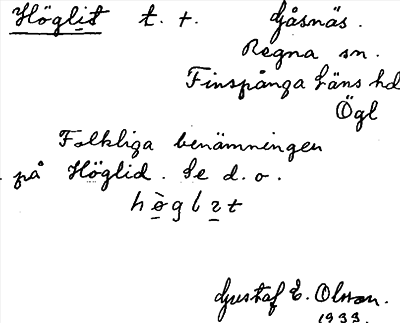 Höglit t. t. Gåsnäs.
Regna sn.
Finspånga läns hd
Ögl
Folkliga benämningen
på Höglid. Se d. o.
hø̀glɩt
Gustaf E. Olsson.
1933.